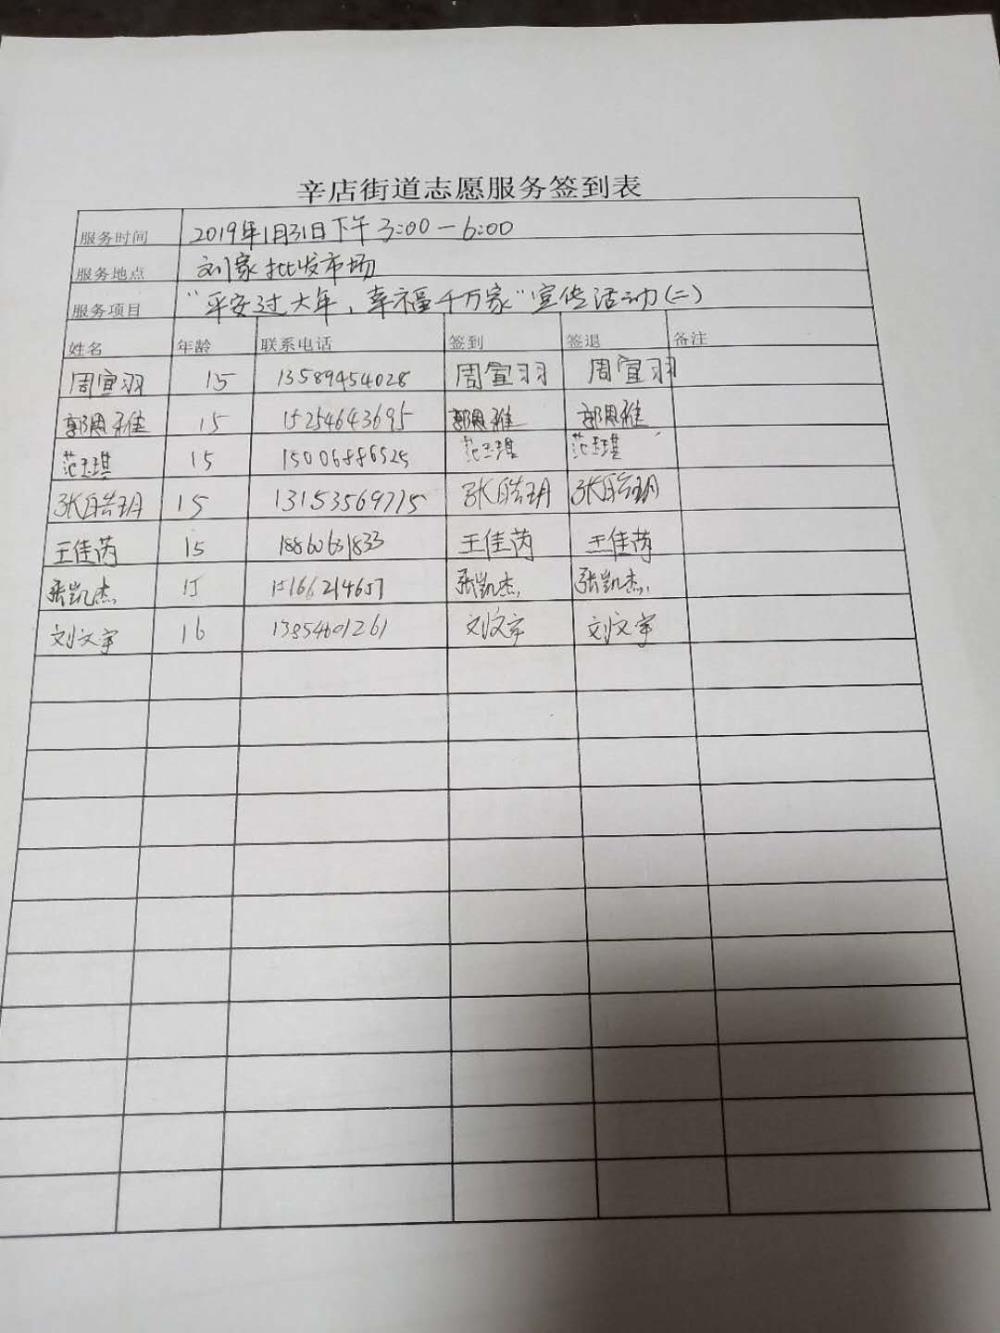 辛店街道志愿服务签到表
服务时间 2019年1月31日下午3:00—6:00
服务地点 刘家批发市场
服务项目 “平安过大年，幸福千万家”宣传活动(二)
姓名 年龄 联系电话 签到 签退 备注
周宜羽 15 13589454028 周宜羽 周宜羽
郭恩雅 15 15254643695 郭恩雅 郭恩雅
范玉琪 15 15006886525 范玉琪 范玉琪
张皓玥 15 13153569715 张皓玥 张皓玥
王佳芮 15 18860631833 王佳芮 王佳芮
张凯杰 15 15166214657 张凯杰 张凯杰
刘文宇 16 13854601261 刘文宇 刘文宇